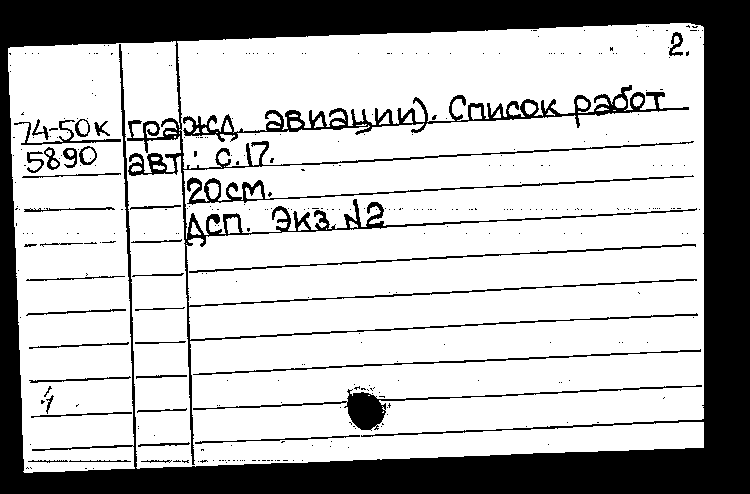 2.
74-50к гражд. авиации). Список работ
5890 авт.: с.17.
20см.
ДСП. Экз. №2
4